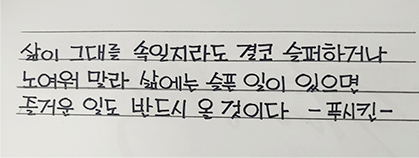 삶이 그대를 속일지라도 결코 슬퍼하거나
노여워 말라 삶에는 슬픈 일이 있으면
즐거운 일도 반드시 올 것이다 -푸시킨-